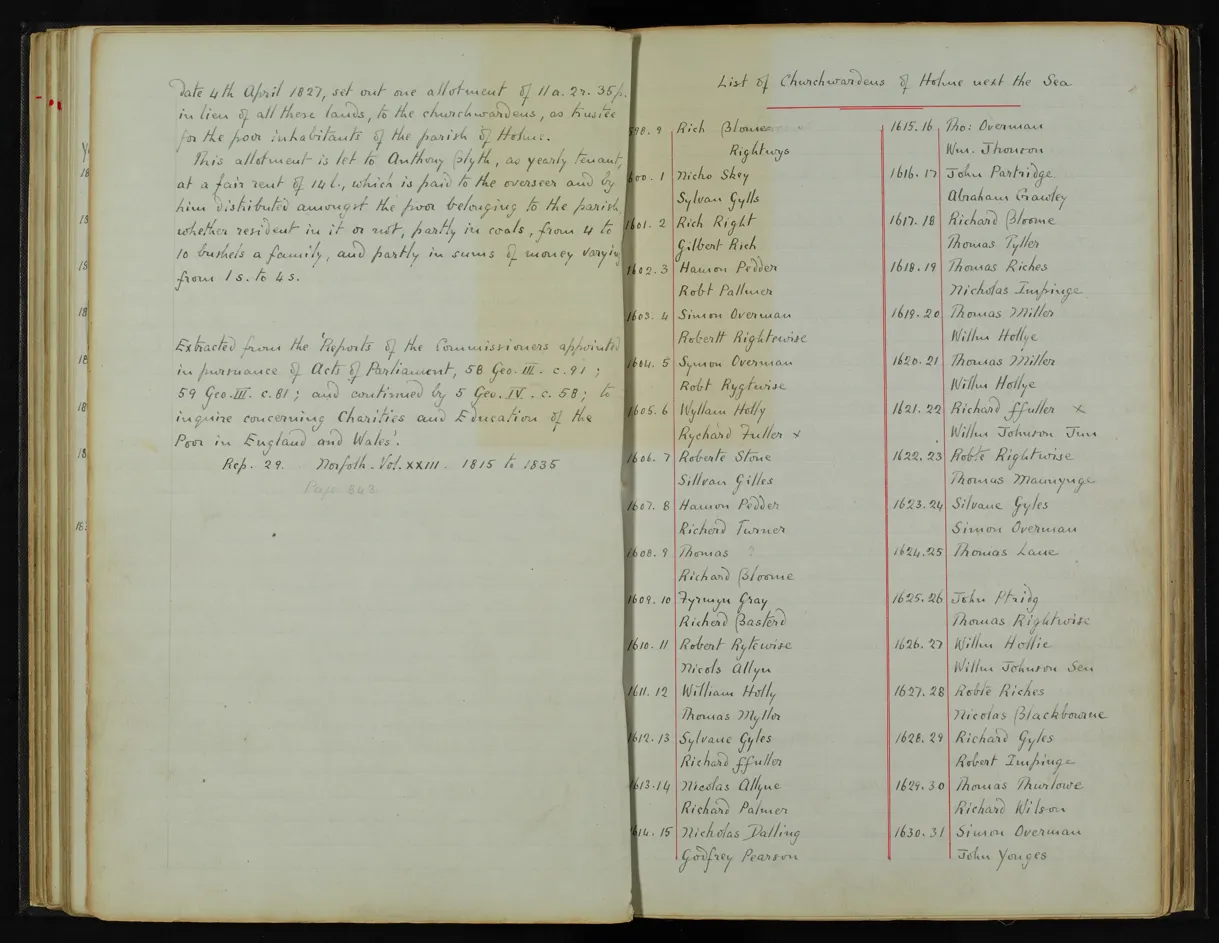 date 4th April 1827, set out one allotment of 11a. 2r. 35p.
in lieu of all these lands, to the churchwardens, as trustee
for the poor inhabitants of the parish of Holme.
This allotment is let to Anthony Blyth, as yearly tenant,
at a fair rent of 14l., which is paid to the overseer and by
him distributed amongst the poor belonging to the parish,
whether resident in it or not, partly in coals, from 4 to
10 bushels a family, and partly in sums of money varying
from 1s. to 4s.
Extracted from the 'Reports of the Commissioners appointed
in pursuance of Acts of Parliament, 58 Geo. III. c. 91 ;
59 Geo. III. c. 81 ; and continued by 5 Geo. IV. c. 58 ; to
inquire concerning Charities and Education of the
Poor in England and Wales'.
Rep. 29. Norfolk. Vol. XXIII. 1815 to 1835
Page 843
List of Churchwardens of Holme next the Sea
598.9 Rich Blome
Rightwys
600.1 Nicho Skey
Sylvan Gylls
1601.2 Rich Right
Gilbert Rich
1602.3 Hamon Pedder
Robt Pallmer
1603.4 Simon Overman
Robertt Rightewise
1604.5 Symon Overman
Robt Rygtwise
1605.6 Wyllam Holly
Rychard Fuller x
1606.7 Roberte Stone
Sillvan Gilles
1607.8 Hamon Pedder
Richerd Turner
1608.9 Thomas ?
Richard Bloome
1609.10 Fyrmyn Gray
Richerd Basterd
1610.11 Robert Rytewise
Nicols Allyn
1611.12 William Holly
Thomas Myller
1612.13 Sylvane Gyles
Richard ffuller
1613.14 Nicolas Allyne
Richard Palmer
1614.15 Nicholas Dalling
Godfrey Pearson
1615.16 Tho: Overman
Wm. Jhonson
1616.17 John Partridge
Abraham Crawley
1617.18 Richard Bloome
Thomas Tyller
1618.19 Thomas Riches
Nicholas Impinge
1619.20 Thomas Miller
Willm Hollye
1620.21 Thomas Miller
Willm Hollye
1621.22 Richard ffuller x
Willm Johnson Jun
1622.23 Robte Rightwise
Thomas Maunynge
1623.24 Silvane Gyles
Simon Overman
1624.25 Thomas Lane
1625.26 John Ptridg
Thomas Rightwise
1626.27 Willm Hollie
Willm Johnson Sen
1627.28 Robte Riches
Nicolas Blackbourne
1628.29 Richard Gyles
Robert Impinge
1629.30 Thomas Thurlowe
Richard Wilson
1630.31 Simon Overman
John Yonges